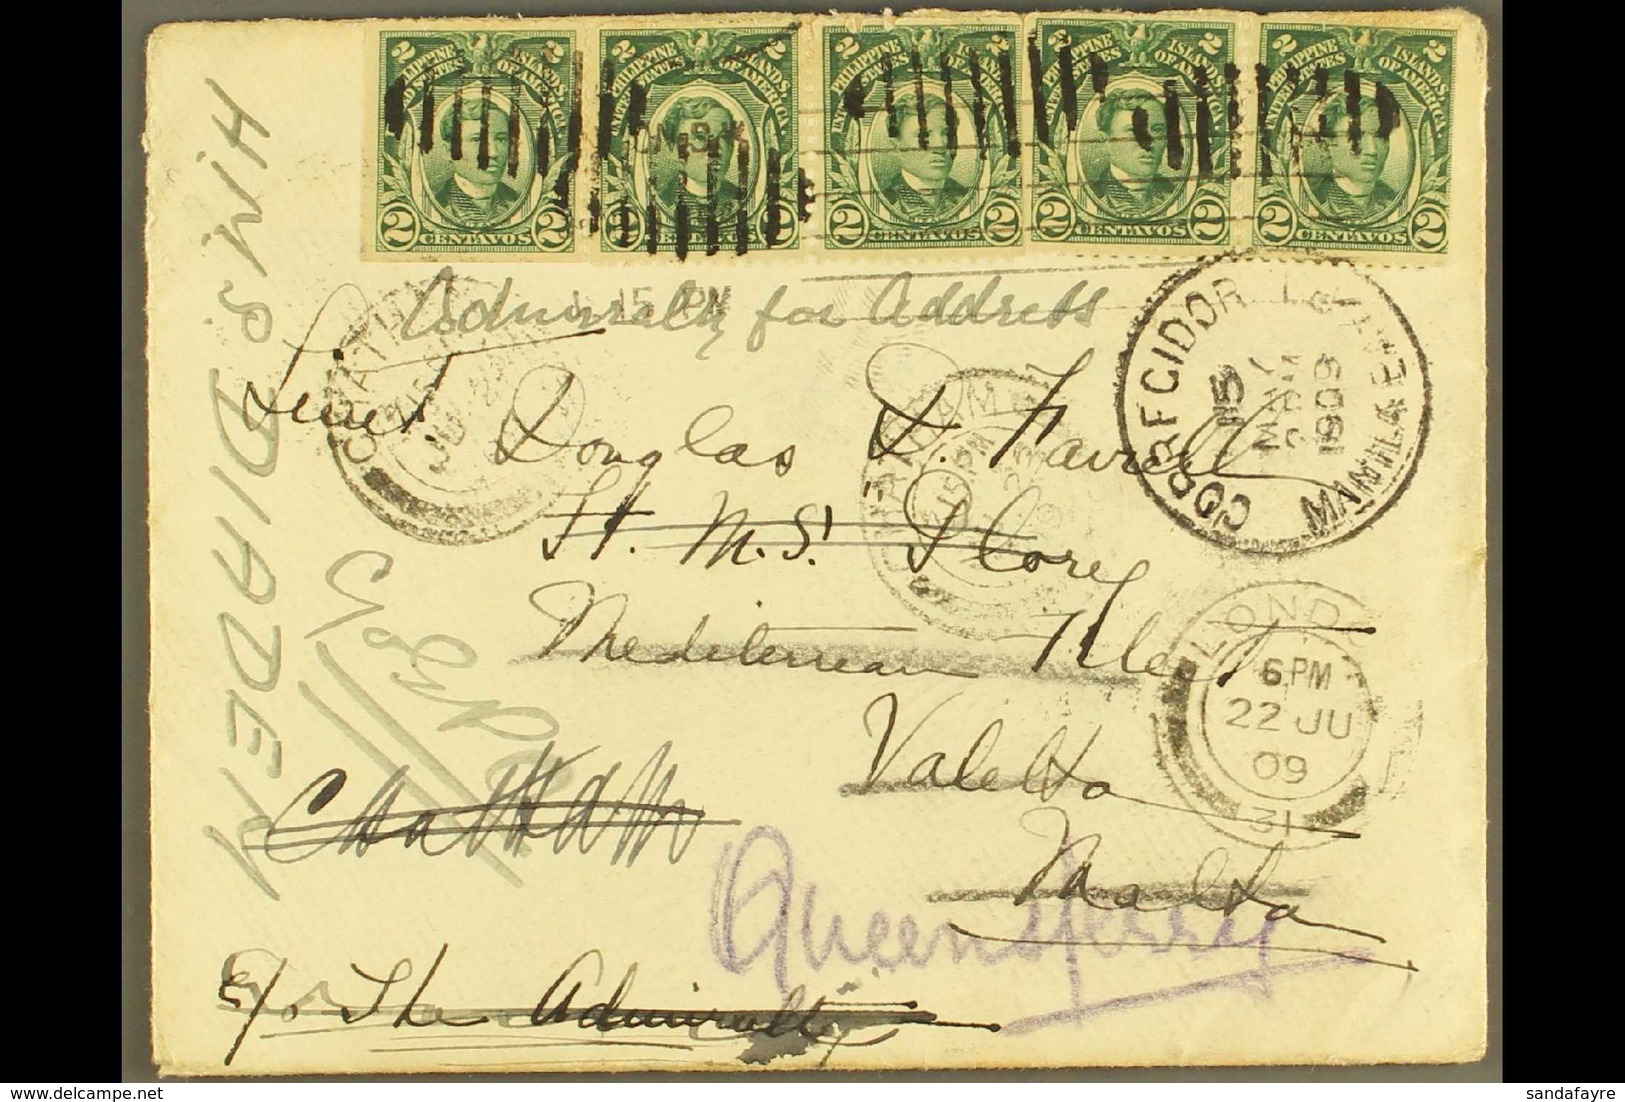 2 PHILIPPINE ISLANDS, 2
UNITED STATES OF AMERICA.
2 CENTAVOS 2
2 PHILIPPINE ISLANDS, 2
UNITED STATES OF AMERICA.
2 CENTAVOS 2
2 PHILIPPINE ISLANDS, 2
UNITED STATES OF AMERICA.
2 CENTAVOS 2
2 PHILIPPINE ISLANDS, 2
UNITED STATES OF AMERICA.
2 CENTAVOS 2
2 PHILIPPINE ISLANDS, 2
UNITED STATES OF AMERICA.
2 CENTAVOS 2
1 15 PM
Admiralty for Address
CORREGIDOR
MANILA
15
MAY
1909
CHATHAM
Lieut Douglas D.
H.M.S.
Mediterrean
Valetta
Malta
LONDON
6.PM
22 JU
09
31
HMS DIADEM
Chatham
Queensferry
c/o The Admiralty
sandafayre